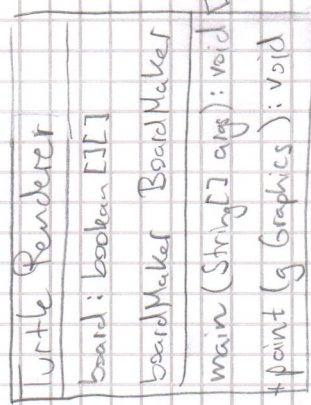 Turtle Renderer
board: boolean [][]
boardMaker BoardMaker
main (String[] args): void
+paint (g Graphics): void